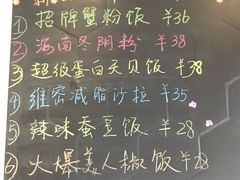 ① 招牌蟹粉饭 ¥36
② 海南冬阴粉 ¥38
③ 超级蛋白天贝饭 ¥38
④ 维密减脂沙拉 ¥35
⑤ 辣味蚕豆饭 ¥28
⑥ 火爆美人椒饭 ¥28